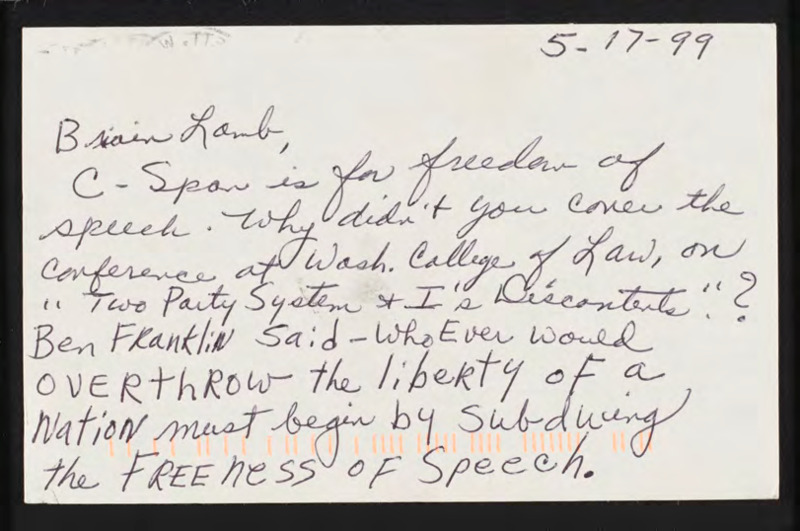 5-17-99
Briain Lamb,
C-Span is for freedom of
speech. Why didn't you cover the
conference at Wash. College of Law, on
"Two Party System & I's Discontents"?
Ben FRanklin Said - WhoEver would
OVERthROW the liberty of a
Nation must begin by Subduing
the FREENESS OF Speech.